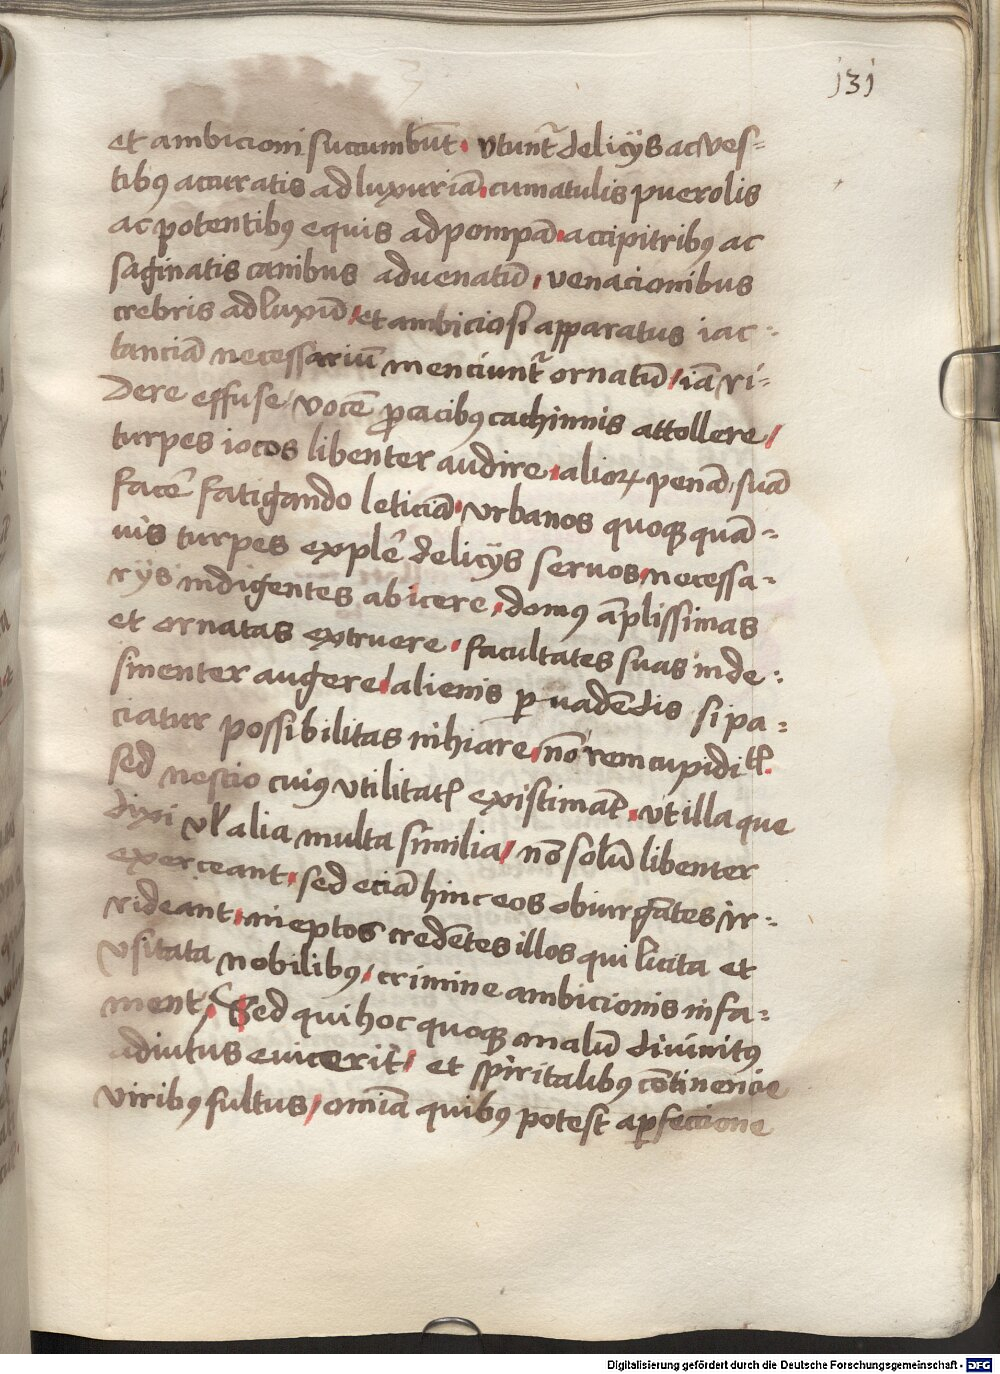 131
et ambicioni succumbūt. vtunt᷑ delicijs ac ves=
tibꝰ accuratis ad luxuriā, cumatulis puerolis
ac potentibꝰ equis ad pompā. accipitribꝰ ac
saginatis canibus ad uenatū, venacionibus
crebris ad luxū, et ambiciosi apparatus iac=
tanciā necessarium menciunt᷑ ornatū, iā ri=
dere effuse vocē ꝓcacibꝰ cachinnis attollere,
turpes iocos libenter audire, alioꝝ penā, suā
facē fatigando leticiā, vrbanos quoqꝫ quā=
uis turpes explē delicijs seruos, necessa=
rijs indigentes abicere, domꝰ āplissimas
et ornatas extruere, facultates suas inde=
sinenter augere, alienis ꝑuadēdis si pa=
ciatur possibilitas inhiare, nō rem cupiditꝭ.
sed nescio cuiꝰ vtilitatꝭ existimāt. vt illa que
dixi vl̓ alia multa similia, nō solū libenter
exerceant, sed eciā hinc eos obiurgātes ir=
rideant, ineptos credētes illos qui licita et
vsitata nobilibꝰ, crimine ambicionis infa=
ment, Sed qui hoc quoqꝫ malū diuinitꝰ
adiutus euicerit, et sp̄iritalibꝰ cōtinencie
viribꝰ fultus, omīa quibꝰ potest a ꝑfeccione
Digitalisierung gefördert durch die Deutsche Forschungsgemeinschaft - DFG